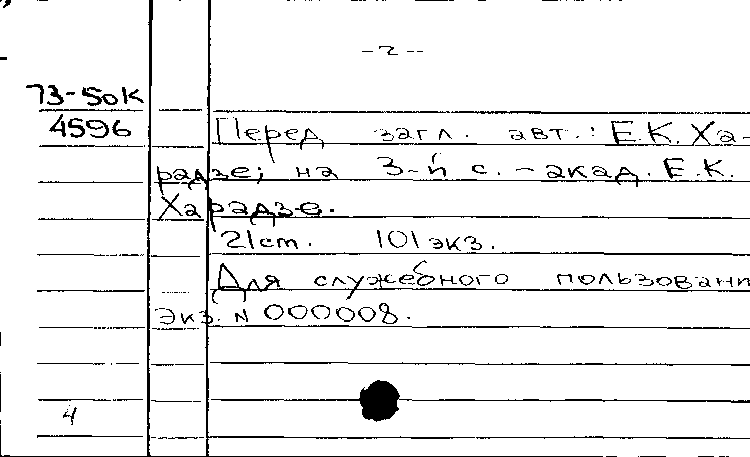 - 2 --
73-50К
4596 Перед загл. авт.: Е.К. Ха-
радзе; на 3-й с. - акад. Е.К.
Харадзе.
21 cm. 101 экз.
Для служебного пользовани
Экз. N 000008.
4